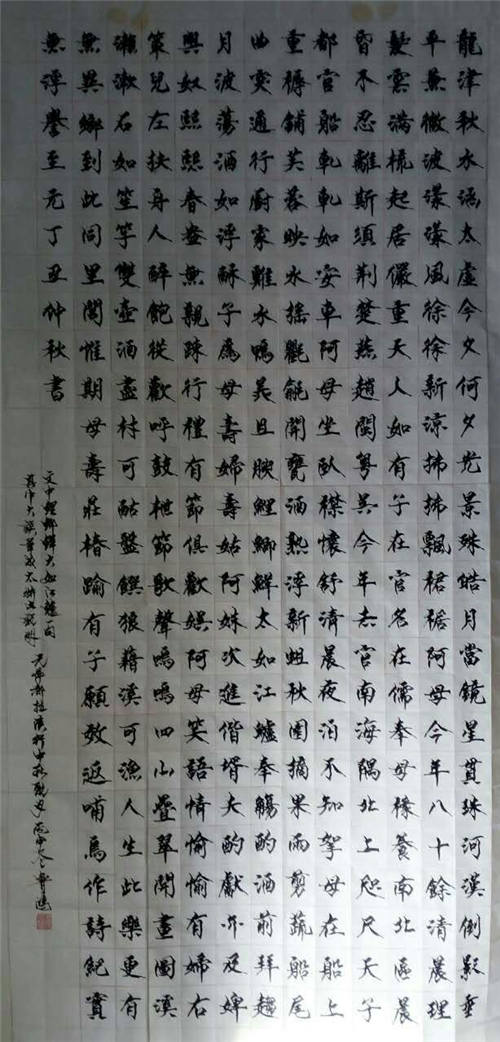 龍津秋水涵太虛今夕何夕光景殊皓月當鏡星貫珠河漢倒影垂
平蕪微波漾漾風徐徐新涼拂拂飄裙裾阿母今年八十餘清晨理
髮雲滿梳起居儼重天人如有子在官名在儒奉母祿養南北區晨
昏不忍離斯須荊楚燕趙閩粵吳今年去官南海隅北上咫尺天子
都官船軋軋如安車阿母坐臥襟懷舒清晨夜泊不知拏母在船上
重褥鋪芙蓉映水搖氍毹開甕酒熟浮新蛆秋園摘果雨剪蔬船尾
曲突通行廚家雞水鴨羙且腴鯉鯽鮮太如江鱸奉觴酌酒前拜趨
月波蕩酒如浮酥子為母壽婦壽姑阿妹次進偕壻夫酌獻亦及婢
與奴熙熙春臺無親疎行禮有節俱歡娛阿母笑語情愉愉有婦右
策兒左扶舟人醉飽從歡呼鼓枻節歌聲嗚嗚四山疊翠開畫圖溪
瀨漱石如笙竽雙壺酒盡村可酤盤饌狼藉溪可漁人生此樂更有
無異鄉到此同里閭惟期母壽莊椿踰有子願效返哺烏作詩紀實
無浮譽至元丁丑仲秋書
文中鯉鯽鮮太如江鱸一句